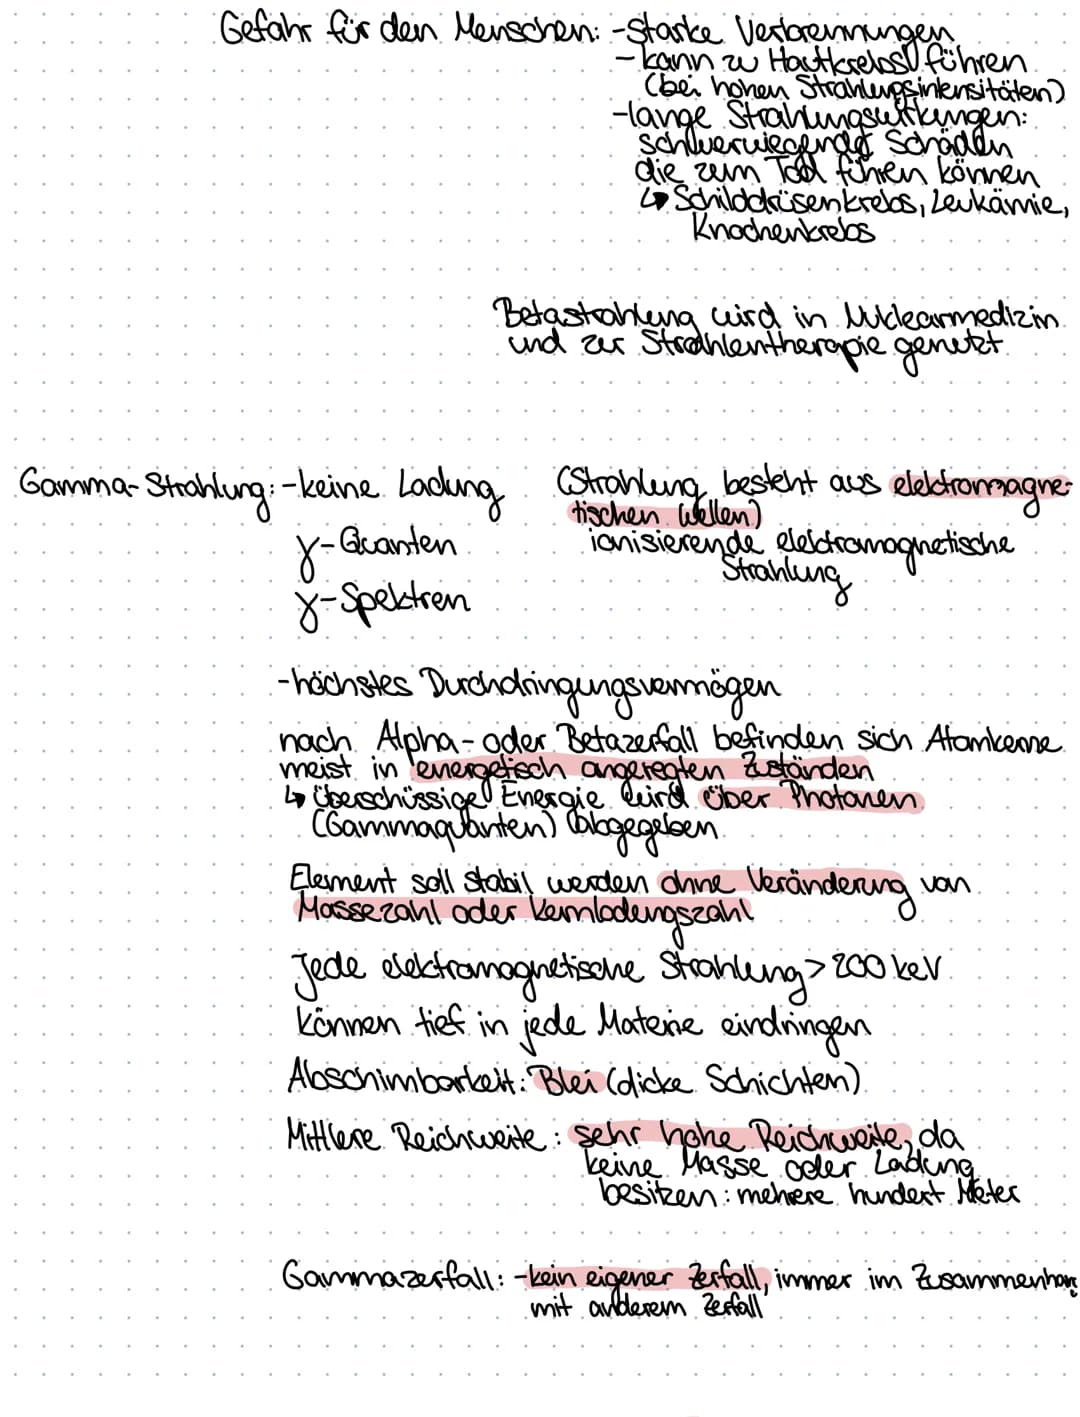 Gefahr für den Menschen: -starke Verbrennungen
- kann zu Hautkrebs führen
(bei hohen Strahlungsintensitäten)
-lange Strahlungswirkungen:
schwerwiegende Schäden
die zum Tod führen können
↳ Schilddrüsenkrebs, Leukämie,
Knochenkrebs
Betastrahlung wird in Nuklearmedizin
und zur Strahlentherapie genutzt
Gamma-Strahlung: -keine Ladung (Strahlung besteht aus elektromagne-
tischen Wellen)
γ-Quanten ionisierende elektromagnetische
Strahlung
γ-Spektren
-höchstes Durchdringungsvermögen
nach Alpha- oder Betazerfall befinden sich Atomkerne
meist in energetisch angeregten Zuständen
↳ überschüssige Energie wird über Photonen
(Gammaquanten) abgegeben
Element soll stabil werden ohne Veränderung von
Massezahl oder Kernladungszahl
Jede elektromagnetische Strahlung > 200 keV
können tief in jede Materie eindringen
Abschirmbarkeit: Blei (dicke Schichten)
Mittlere Reichweite: sehr hohe Reichweite, da
keine Masse oder Ladung
besitzen: mehrere hundert Meter
Gammazerfall: -kein eigener Zerfall, immer im Zusammenhang
mit anderem Zerfall